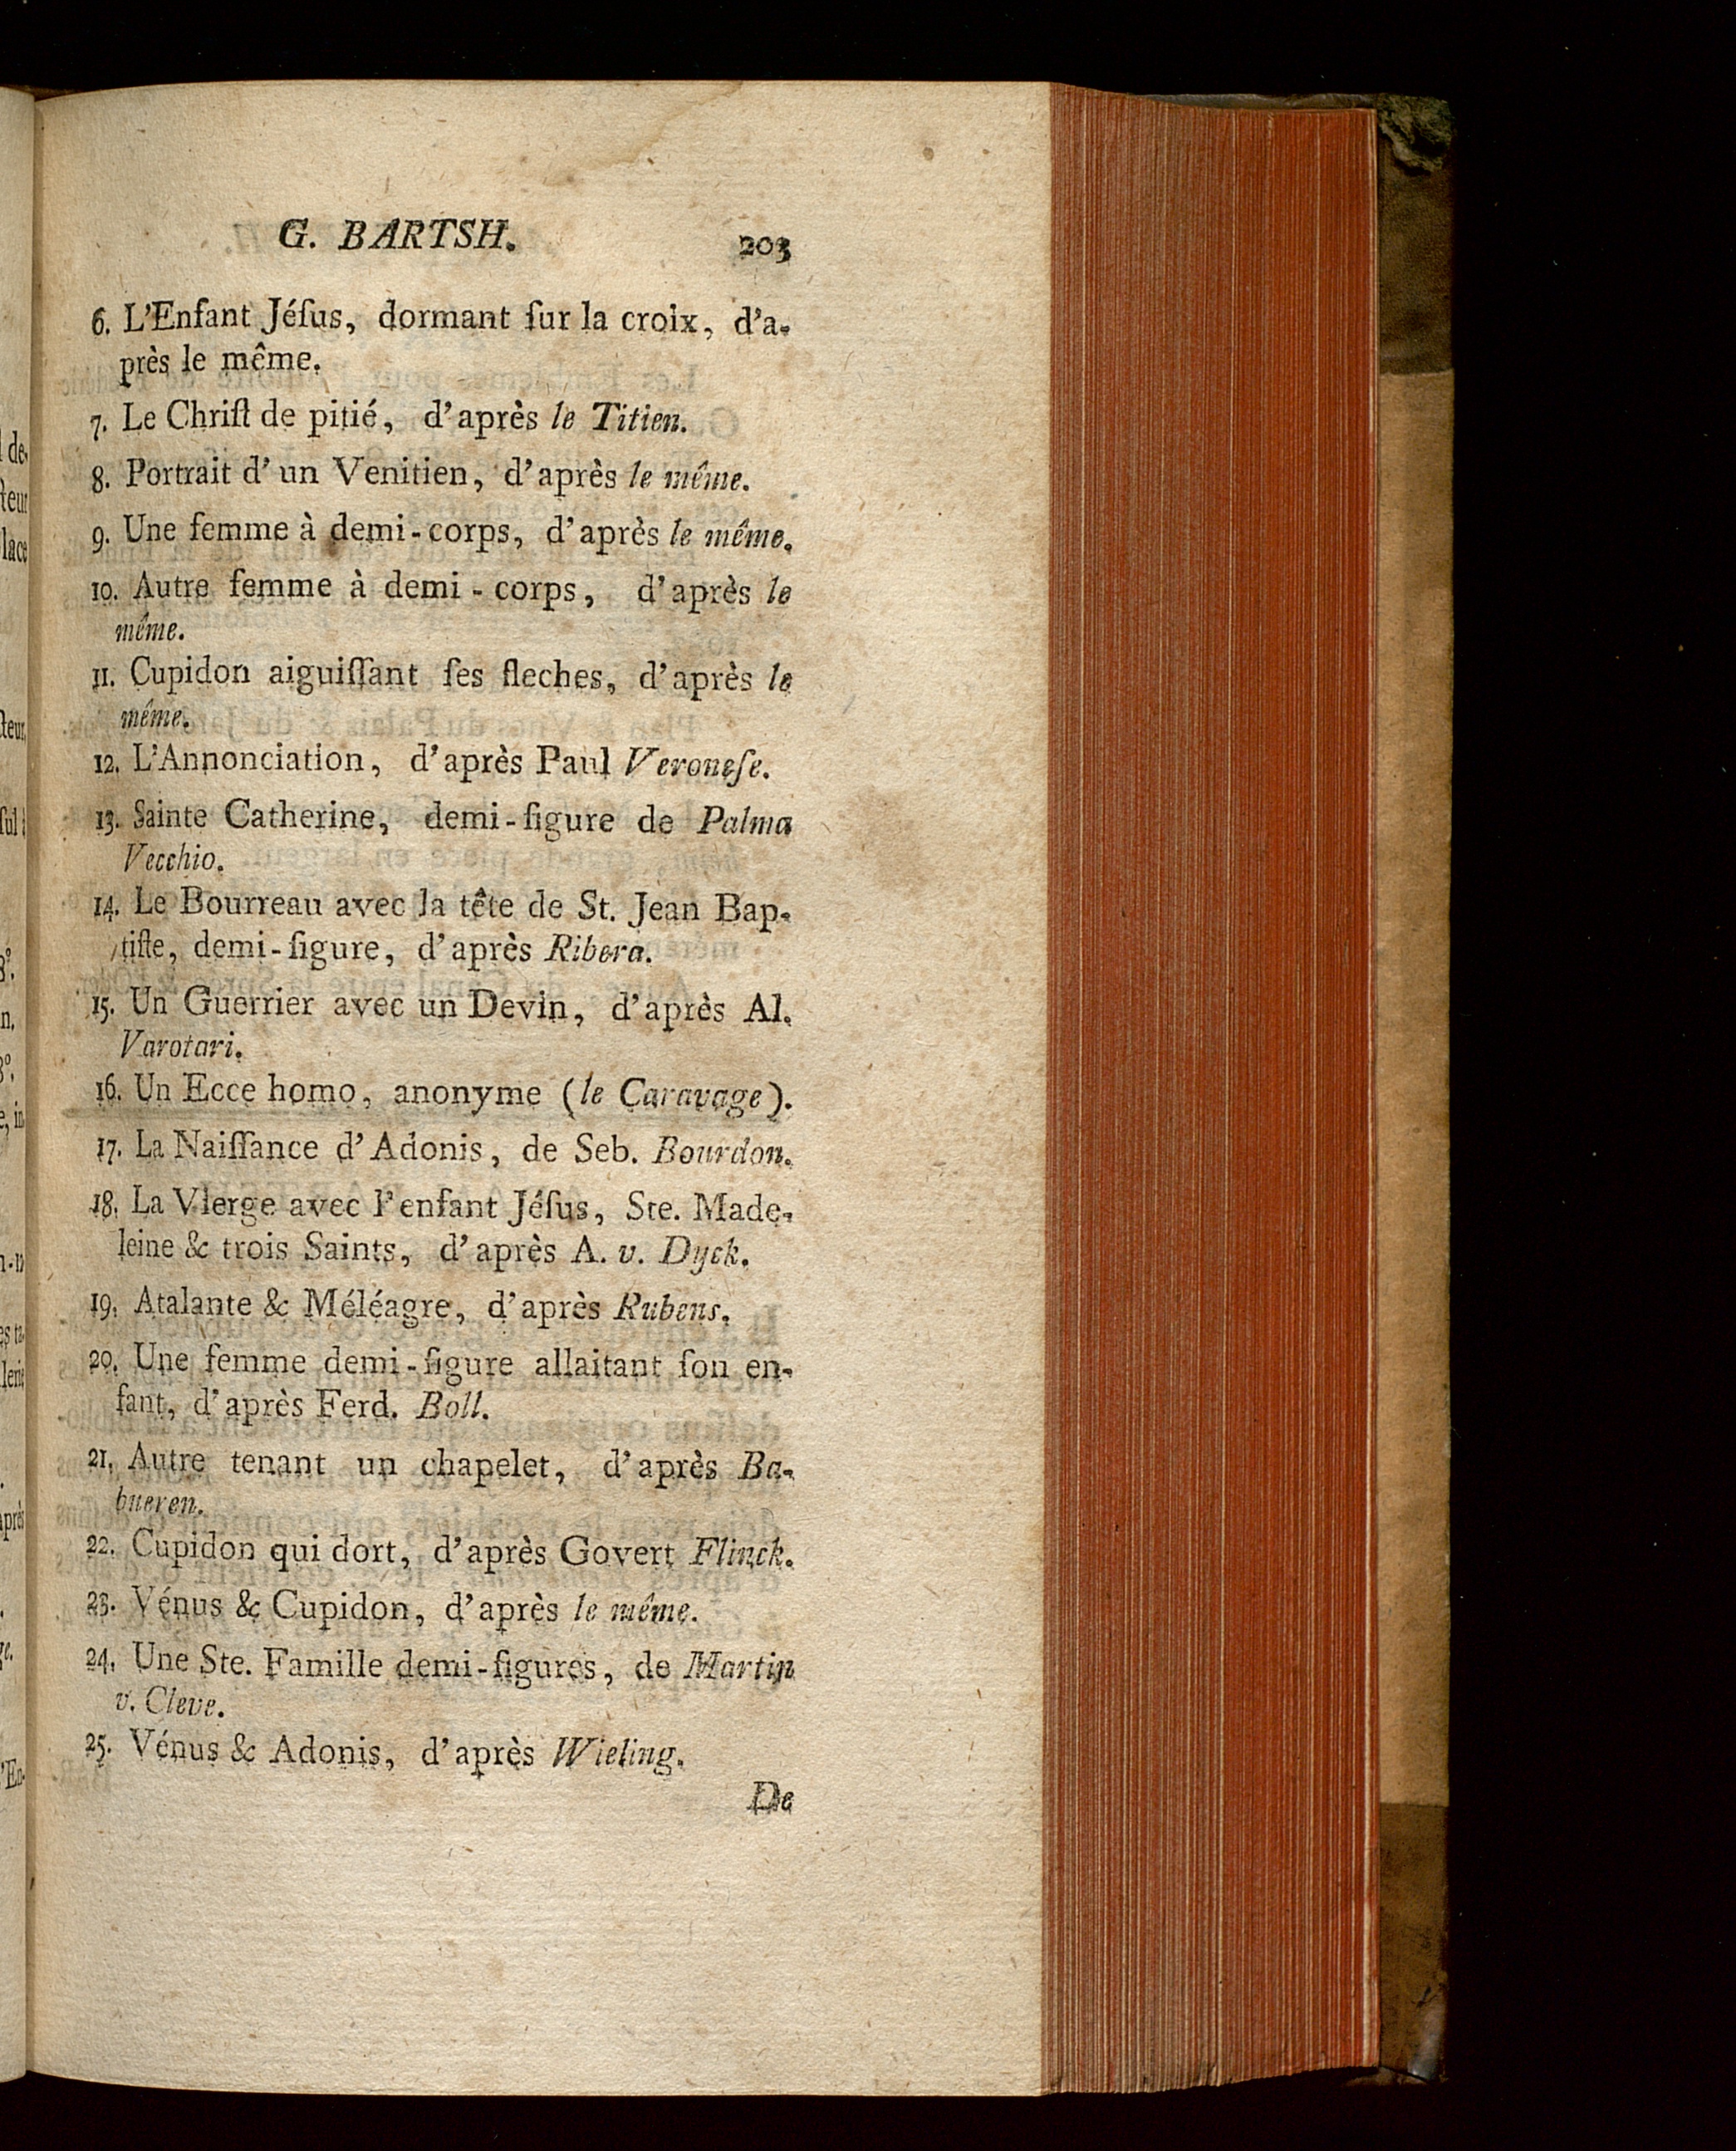 G. BARTSH. 203
6. L'Enfant Jéſus, dormant ſur la croix, d'a-
près le même.
7. Le Chriſt de pitié, d'après le Titien.
8. Portrait d'un Venitien, d'après le même.
9. Une femme à demi-corps, d'après le même.
10. Autre femme à demi-corps, d'après le
même.
11. Cupidon aiguiſſant ſes fleches, d'après le
même.
12. L'Annonciation, d'après Paul Veroneſe.
13. Sainte Catherine, demi-figure de Palma
Vecchio.
14. Le Bourreau avec la tête de St. Jean Bap-
tiſte, demi-figure, d'après Ribera.
15. Un Guerrier avec un Devin, d'après Al.
Varotari.
16. Un Ecce homo, anonyme (le Caravage).
17. La Naiſſance d'Adonis, de Seb. Bourdon.
18. La Vierge avec l'enfant Jéſus, Ste. Made-
leine & trois Saints, d'après A. v. Dyck.
19. Atalante & Méléagre, d'après Rubens.
20. Une femme demi-figure allaitant ſon en-
fant, d'après Ferd. Boll.
21. Autre tenant un chapelet, d'après Ba-
bueren.
22. Cupidon qui dort, d'après Govert Flinck.
23. Vénus & Cupidon, d'après le même.
24. Une Ste. Famille demi-figures, de Martin
v. Cleve.
25. Vénus & Adonis, d'après Wieling.
De